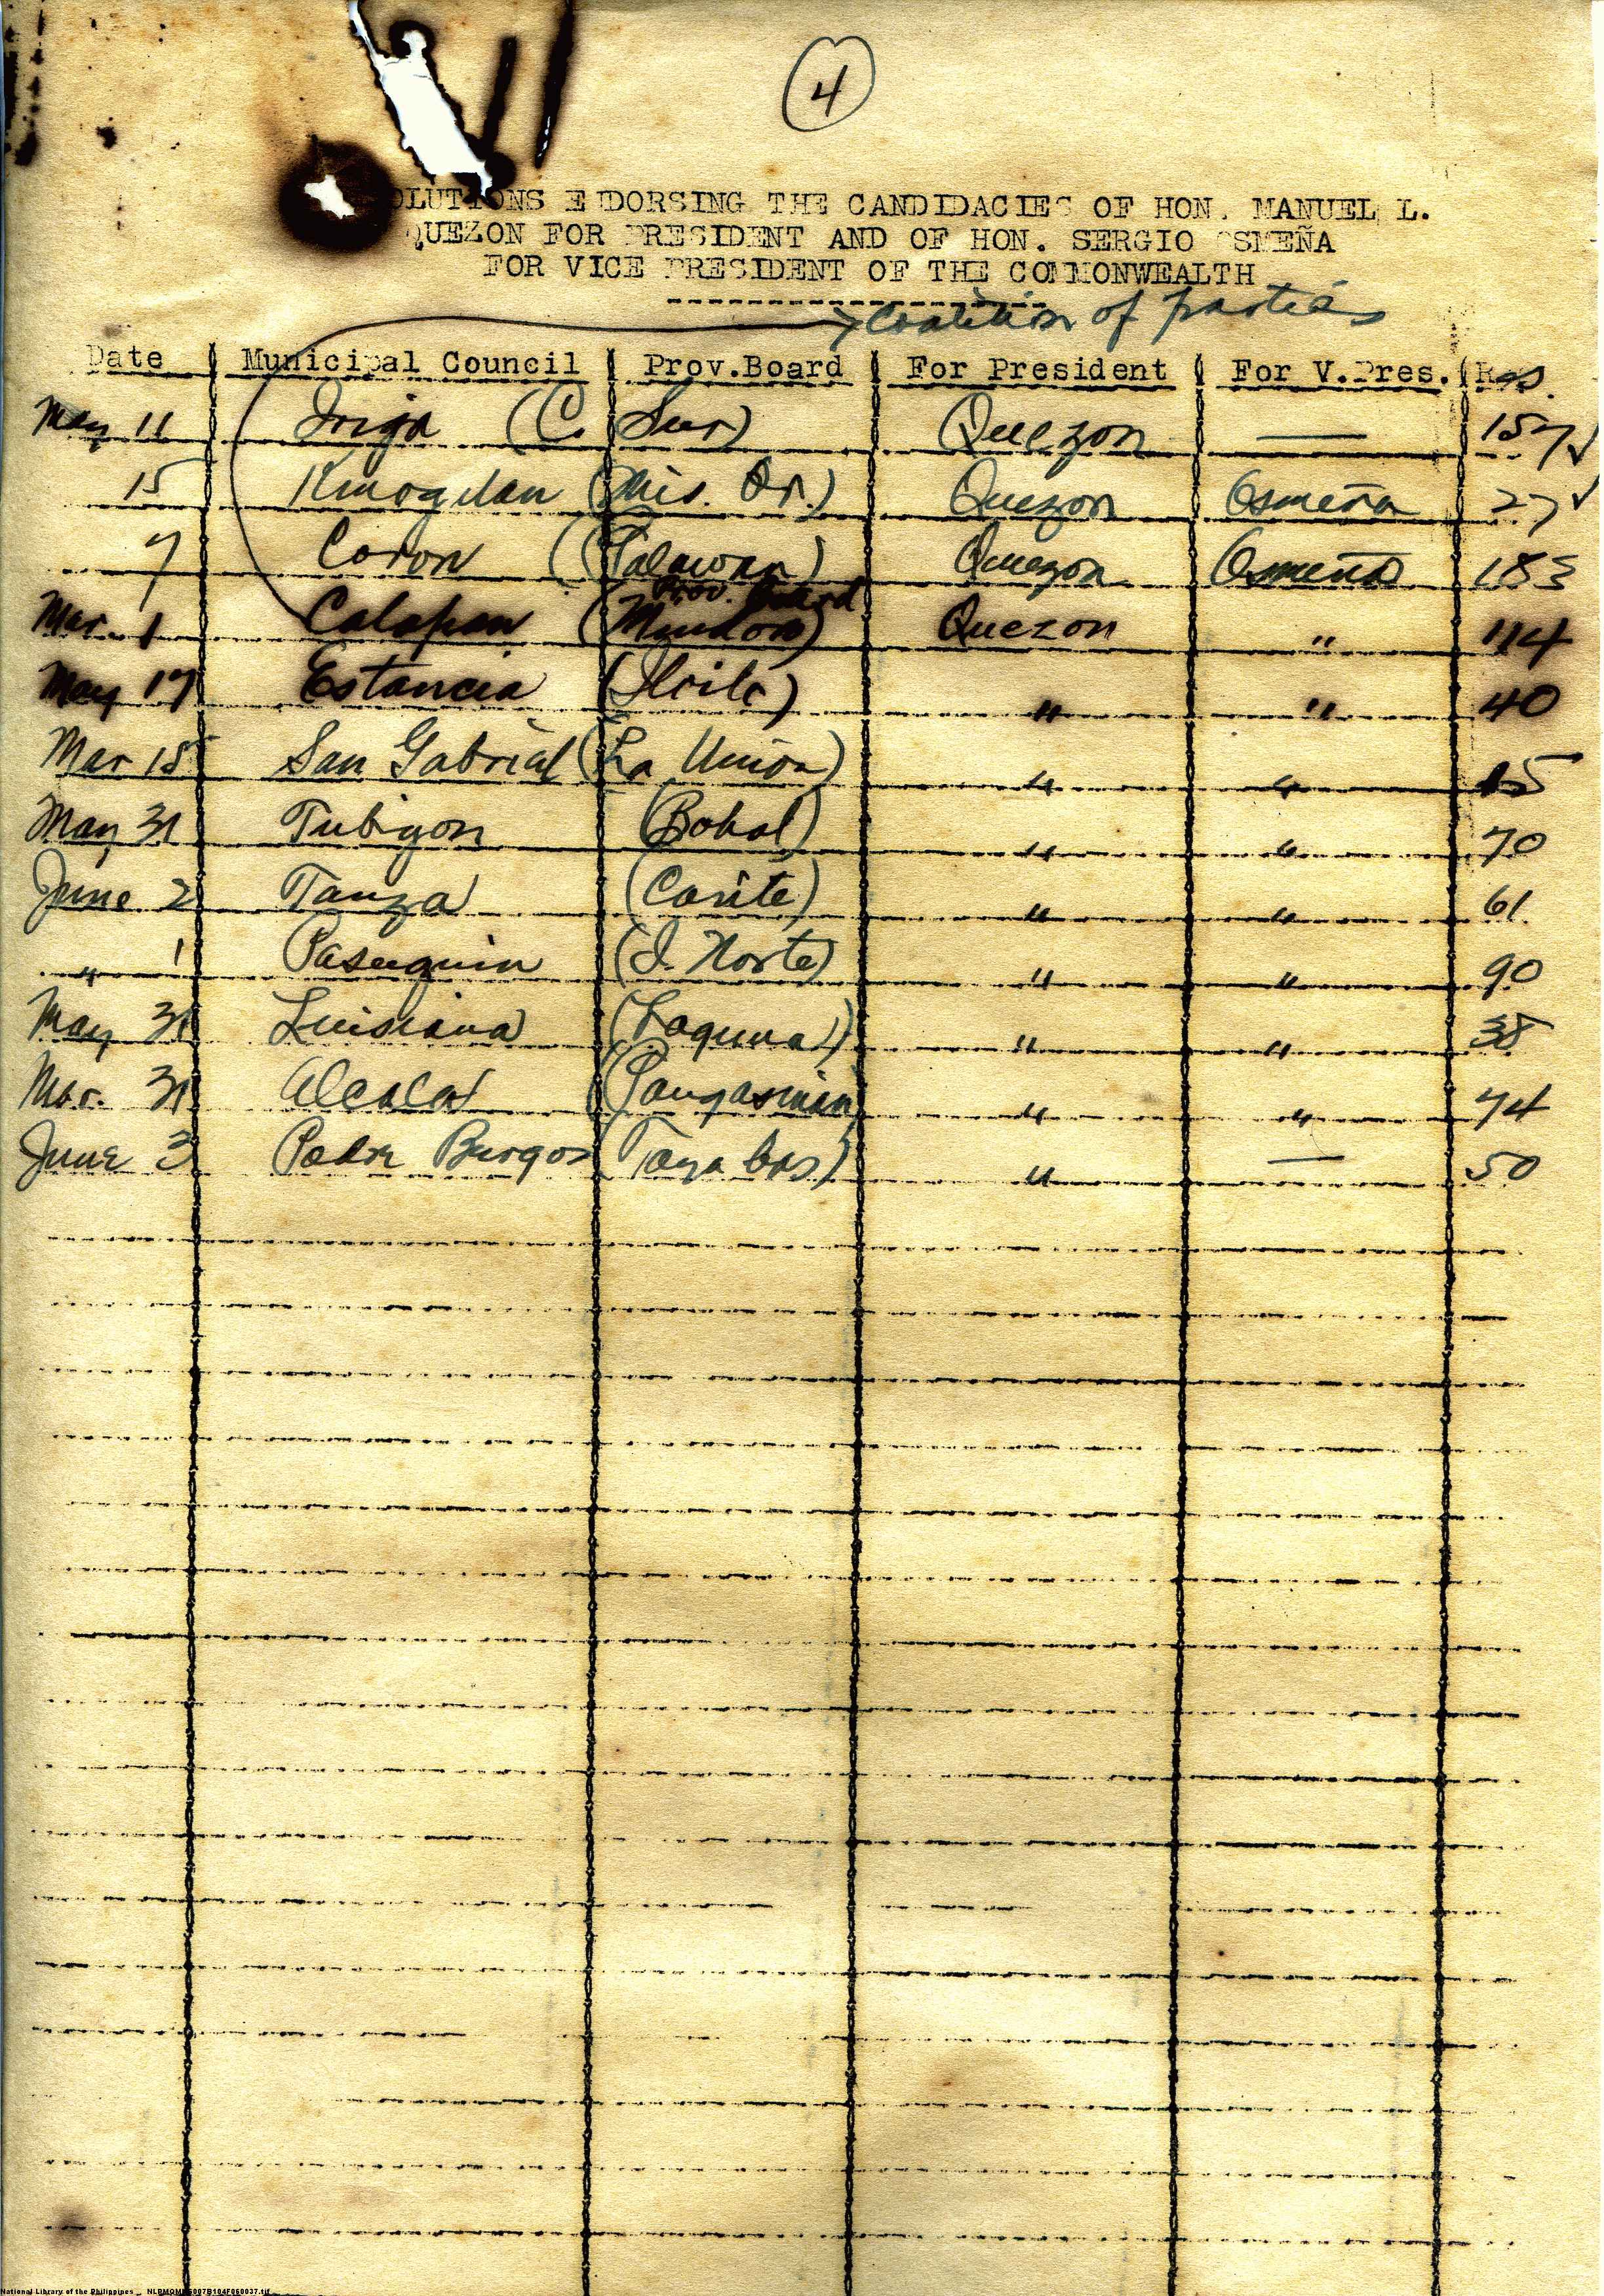 4
OLUTIONS E DORSING THE CANDIDACIES OF HON. MANUEL L.
QUEZON FOR PRESIDENT AND OF HON. SERGIO OSMEÑA
FOR VICE PRESIDENT OF THE COMMONWEALTH
Coalition of parties
Date Municipal Council Prov.Board For President For V.Pres. Res.
May 11 Iriga (C. Sur) Quezon — 157 ✓
15 Kinogitan (Mis. Or.) Quezon Osmeña 27 ✓
7 Coron (Palawan) Quezon Osmeña 183
Prov. Board
Mar. 1 Calapan (Mindoro) Quezon " 114
May 17 Estancia (Iloilo) " " 40
Mar 18 San Gabriel (La Union) " " 15
May 31 Tubigon (Bohol) " " 70
June 2 Tanza (Cavite) " " 61
" 1 Pasuquin (I. Norte) " " 90
May 31 Luisiana (Laguna) " " 38
Mar. 31 Alcala (Pangasinan) " " 74
June 3 Padre Burgos (Tayabas) " — 50
National Library of the Philippines